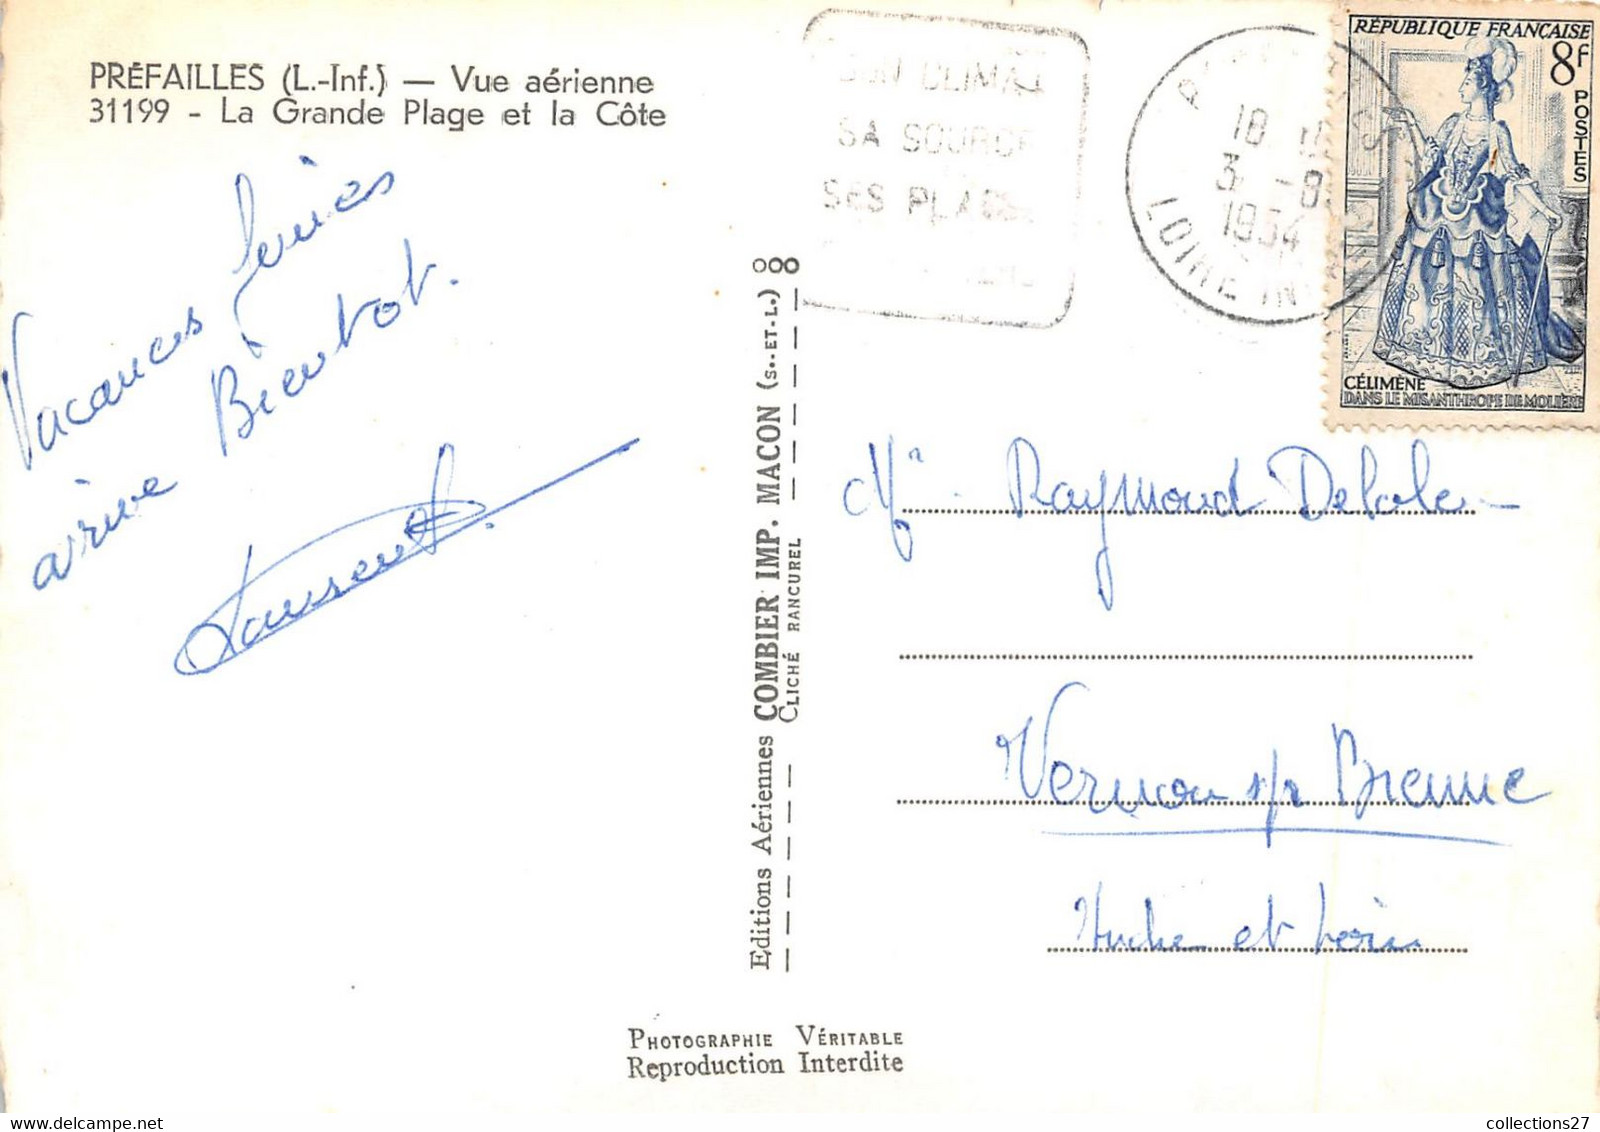 PRÉFAILLES (L.-Inf.) — Vue aérienne
31199 - La Grande Plage et la Côte
Vacances finies
arrive Bientot.
SON CLIMAT
SA SOURCE
SES PLAGES
18
3 -8
1954
LOIRE INF
RÉPUBLIQUE FRANÇAISE
8F
POSTES
CÉLIMÈNE
DANS LE MISANTHROPE DE MOLIÈRE
Editions Aériennes COMBIER IMP. MACON (S.-ET-L.)
CLICHÉ RANCUREL
Mr Raymond
Vernou s/r Brenne
Indre et Loire
PHOTOGRAPHIE VÉRITABLE
Reproduction Interdite
collections27